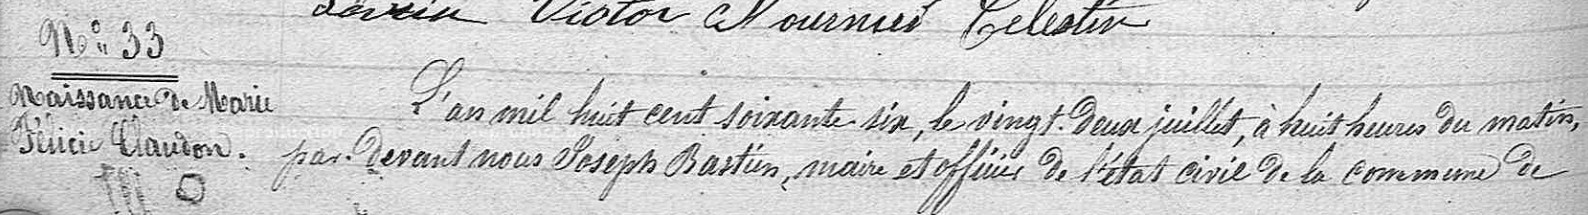 Victor Célestin
N° 33
Naissance de Marie
Félicie Claudon.
L'an mil huit cent soixante-six, le vingt-deux juillet, à huit heures du matin,
par-devant nous Joseph Bastien, maire et officier de l'état civil de la commune de